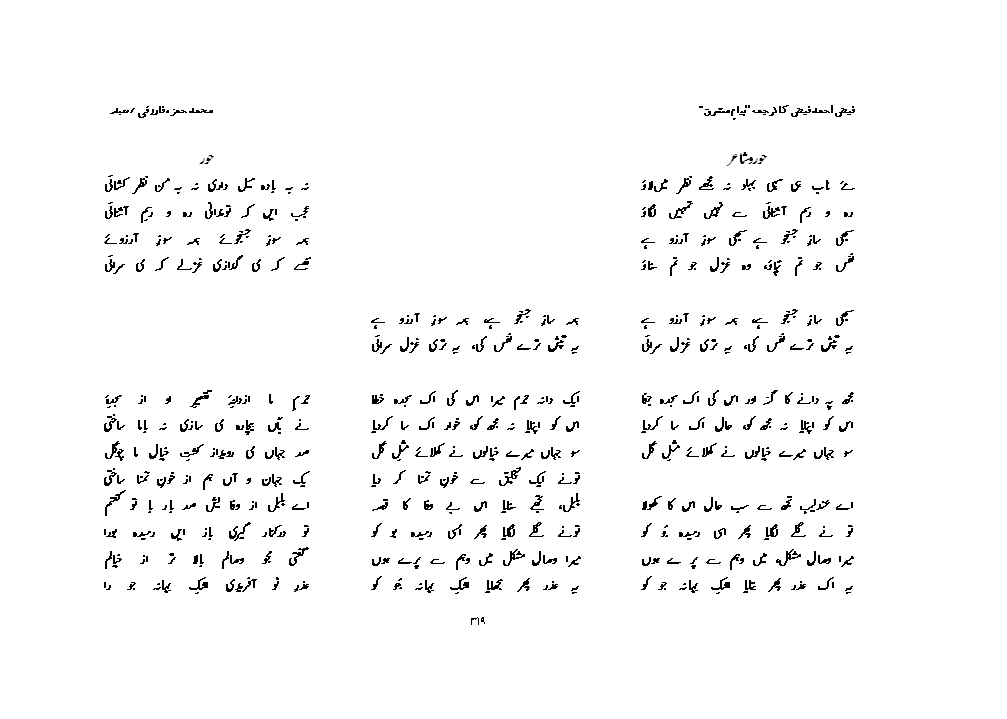 فیض احمد فیض کا ترجمہ "پیامِ مشرق"
محمد حمزہ فاروقی / صبا
حور و شاعر
نے ناب ہی سہی پہلو نہ مجھے نظر میں لاؤ
رہ و رسم آشنائی سے نہیں تمہیں لگاؤ
سبھی سازِ جستجو ہے سبھی سوزِ آرزو ہے
نفس جو تم تپاؤ، وہ غزل جو تم سناؤ
سبھی سازِ جستجو ہے، ہمہ سوزِ آرزو ہے
یہ تپش ترے نفس کی، یہ تری غزل سرائی
مجھ پہ دانے کا گر اور اس کی اک سجدہ جفا
اس کو اپنایا نہ مجھ کو، حال اک سا کردیا
سو جہاں میرے خیالوں نے کھلائے مثلِ گل
اے عندلیب تجھ سے سب حال اس کا کھولا
تو نے گلے لگایا پھر اسی رمیدہ بو کو
میرا وصال مشکل، میں وہم سے پرے ہوں
یہ اک عذر پھر بنایا اشکِ بہانہ جو کو
ہمہ سازِ جستجو ہے، ہمہ سوزِ آرزو ہے
یہ تپش ترے نفس کی، یہ تری غزل سرائی
ایک دانہ جرم میرا اس کی اک سجدہ خطا
اس کو اپنایا نہ مجھ کو، خوار اک سا کردیا
سو جہاں میرے خیالوں نے کھلائے مثلِ گل
تونے ایک تخلیق سے خونِ تمنا کر دیا
بلبل، تجھے سنایا اس بے وفا کا قصہ
تونے گلے لگایا پھر اُسی رمیدہ بو کو
میرا وصال مشکل میں وہم سے پرے ہوں
یہ عذر پھر سجھایا اشکِ بہانہ جُو کو
حور
نہ بہ بادہ میل داری نہ بہ من نظر کشائی
عجب ایں کہ تو ندانی رہ و رسم آشنائی
ہمہ سازِ جستجوئے ہمہ سوزِ آرزوئے
نفسے کہ می گدازی غزلے کہ می سرائی
جرم ما از دانۂ تقصیر او از سجدۂ
نے بآں بیچارہ می سازی نہ باما ساختی
صد جہاں می روید از کشتِ خیال ما چو گل
یک جہان و آں ہم از خونِ تمنا ساختی
اے بلبل از وفایش صد بار با تو گفتم
تو درکنار گیری باز ایں رمیدہ بورا
گفتی مجو وصالم بالا تر از خیالم
عذرِ نو آفریدی اشکِ بہانہ جو را
۳۱۹